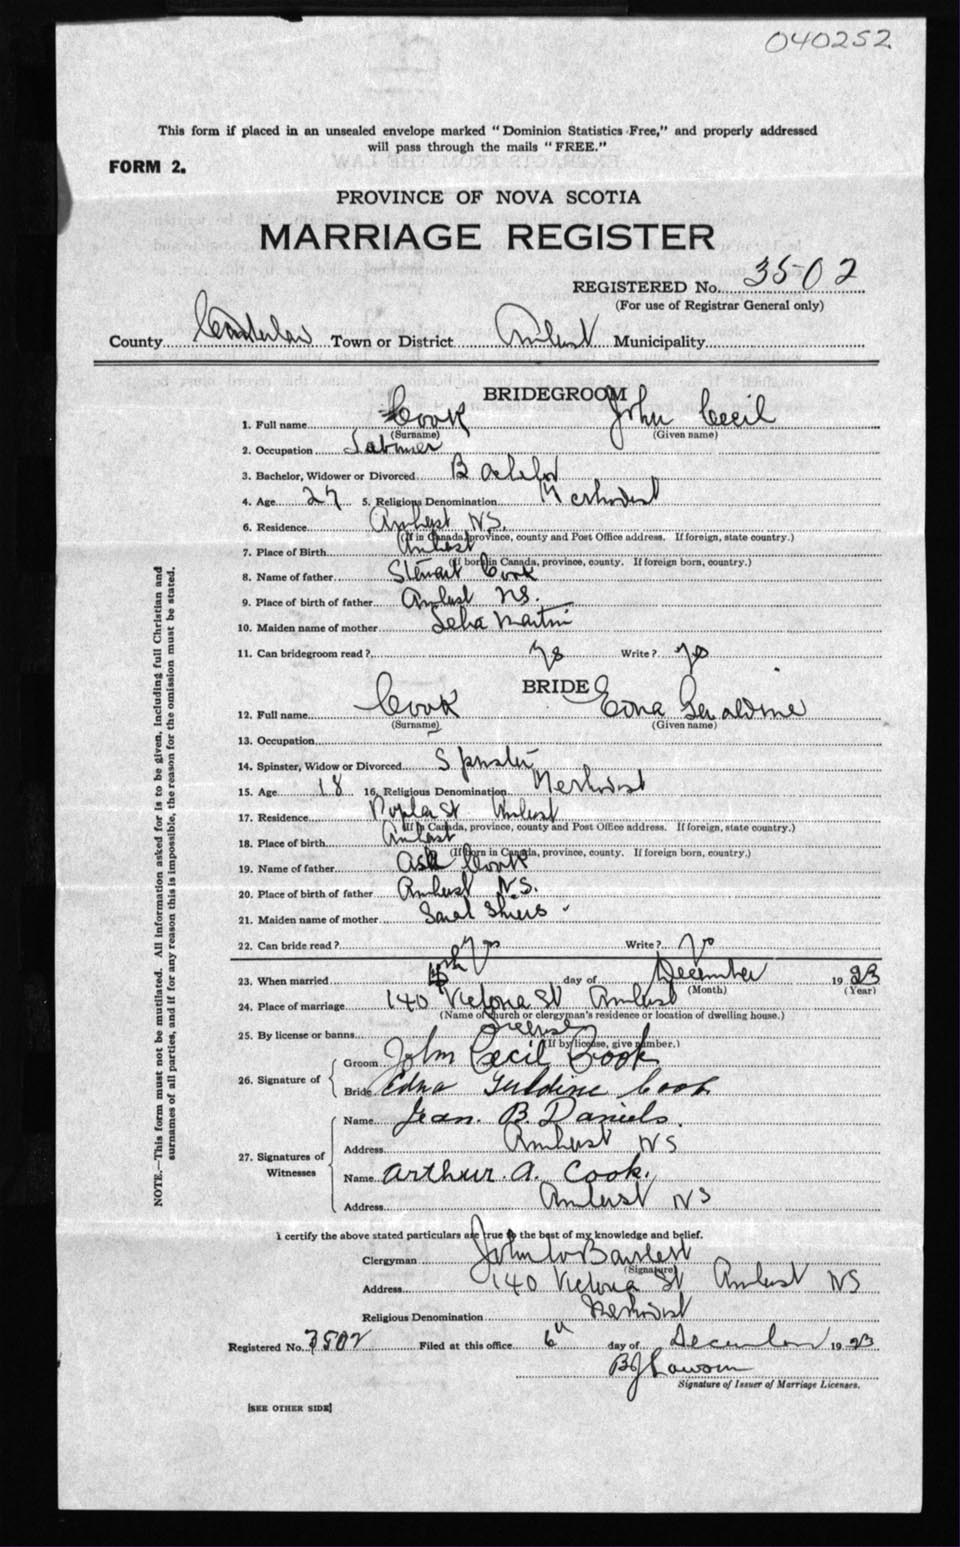 040252
This form if placed in an unsealed envelope marked "Dominion Statistics Free," and properly addressed
will pass through the mails "FREE."
FORM 2.
PROVINCE OF NOVA SCOTIA
MARRIAGE REGISTER
REGISTERED No. 3502
(For use of Registrar General only)
County Cumberland Town or District Amherst Municipality
BRIDEGROOM
1. Full name Cook John Cecil
(Surname) (Given name)
2. Occupation
3. Bachelor, Widower or Divorced Bachelor
4. Age 27 5. Religious Denomination Methodist
6. Residence Amherst NS.
(If in Canada, province, county and Post Office address. If foreign, state country.)
7. Place of Birth Amherst
(If born in Canada, province, county. If foreign born, country.)
8. Name of father Stewart Cook
9. Place of birth of father Amherst NS.
10. Maiden name of mother Martin
11. Can bridegroom read? yes Write? yes
BRIDE
12. Full name Cook Edna Geraldine
(Surname) (Given name)
13. Occupation
14. Spinster, Widow or Divorced Spinster
15. Age 18 16. Religious Denomination Methodist
17. Residence Poplar St Amherst
(If in Canada, province, county and Post Office address. If foreign, state country.)
18. Place of birth Amherst
(If born in Canada, province, county. If foreign born, country.)
19. Name of father Cook
20. Place of birth of father Amherst NS.
21. Maiden name of mother
22. Can bride read? yes Write? yes
23. When married day of December 1923
(Month) (Year)
24. Place of marriage 140 Victoria St Amherst
(Name of church or clergyman's residence or location of dwelling house.)
25. By license or banns License
(If by license, give number.)
26. Signature of
Groom John Cecil Cook
Bride Edna Geraldine Cook
27. Signatures of Witnesses
Name Jean. B. Daniels.
Address Amherst NS
Name Arthur. A. Cook.
Address Amherst NS
I certify the above stated particulars are true to the best of my knowledge and belief.
Clergyman John W
(Signature)
Address 140 Victoria St Amherst NS
Religious Denomination Methodist
Registered No. 3502 Filed at this office 6th day of December 1923
Signature of Issuer of Marriage Licenses.
[SEE OTHER SIDE]
NOTE.—This form must not be mutilated. All information asked for is to be given, including full Christian and
surnames of all parties, and if for any reason this is impossible, the reason for the omission must be stated.